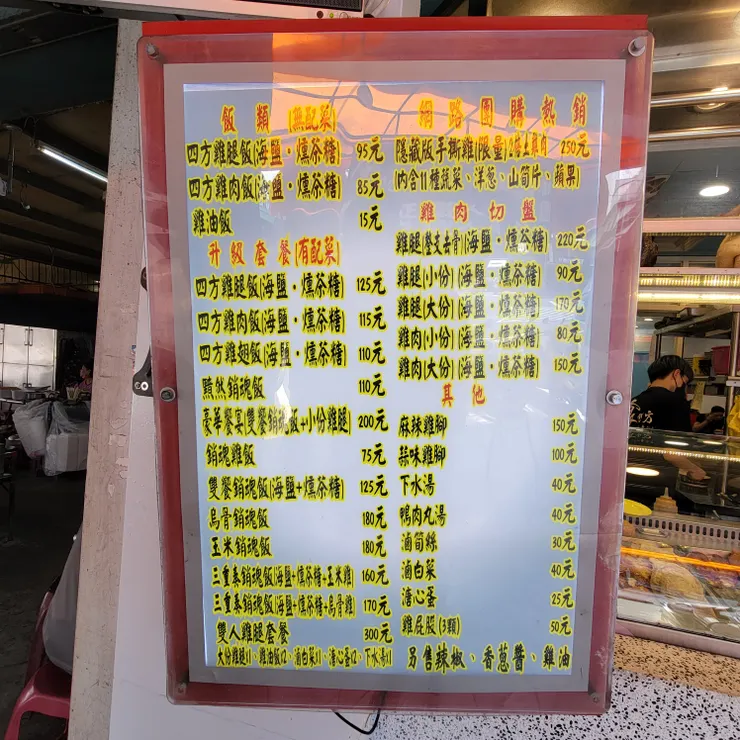 飯類(無配菜)
四方雞腿飯(海鹽·燻茶糖) 95元
四方雞肉飯(海鹽·燻茶糖) 85元
雞油飯 15元
升級套餐(有配菜)
四方雞腿飯(海鹽·燻茶糖) 125元
四方雞肉飯(海鹽·燻茶糖) 115元
四方雞翅飯(海鹽·燻茶糖) 110元
黯然銷魂飯 110元
豪華饗宴(雙饗銷魂飯+小份雞腿) 200元
銷魂雞飯 75元
雙饗銷魂飯(海鹽+燻茶糖) 125元
烏骨銷魂飯 180元
玉米銷魂飯 180元
三重奏銷魂飯(海鹽+燻茶糖+玉米雞) 160元
三重奏銷魂飯(海鹽+燻茶糖+烏骨雞) 170元
雙人雞腿套餐 300元
大份雞腿x1、雞油飯x2、滷白菜x1、溏心蛋x2、下水湯x1
網路團購熱銷
隱藏版手撕雞(限量) 250元
(內含11種蔬菜、洋蔥、山筍片、蘋果)
雞肉切盤
雞腿(整支去骨)(海鹽·燻茶糖) 220元
雞腿(小份)(海鹽·燻茶糖) 90元
雞腿(大份)(海鹽·燻茶糖) 170元
雞肉(小份)(海鹽·燻茶糖) 80元
雞肉(大份)(海鹽·燻茶糖) 150元
其他
麻辣雞腳 150元
蒜味雞腳 100元
下水湯 40元
鴨肉丸湯 40元
滷筍絲 30元
滷白菜 40元
溏心蛋 25元
雞屁股(3顆) 50元
另售辣椒、香蔥醬、雞油